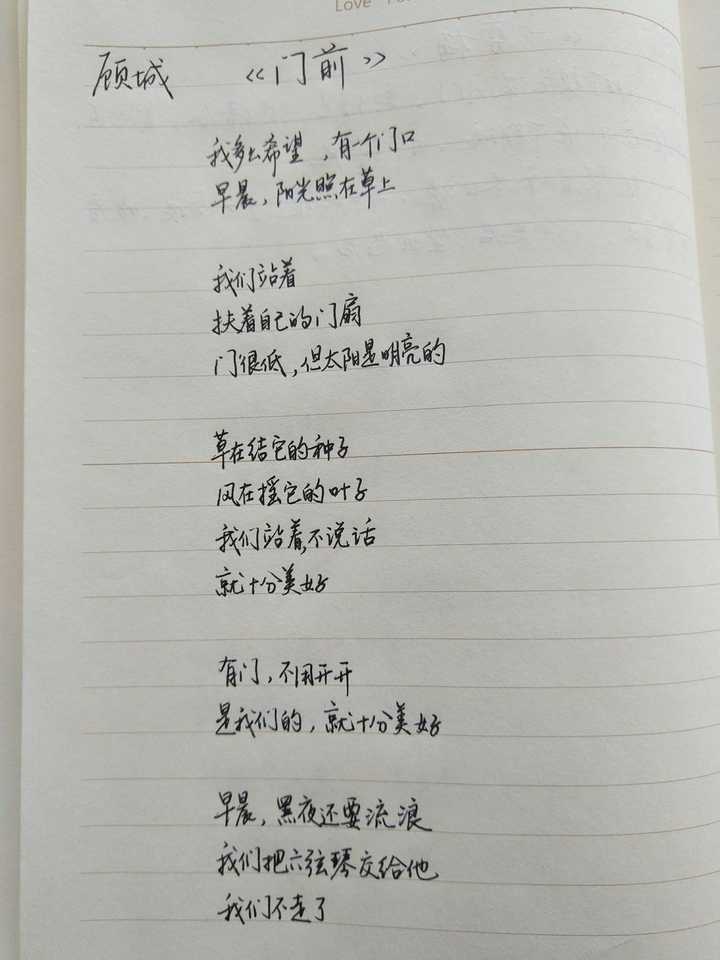 Love
顾城 《门前》
我多么希望，有一个门口
早晨，阳光照在草上
我们站着
扶着自己的门扇
门很低，但太阳是明亮的
草在结它的种子
风在摇它的叶子
我们站着，不说话
就十分美好
有门，不用开开
是我们的，就十分美好
早晨，黑夜还要流浪
我们把六弦琴交给他
我们不走了